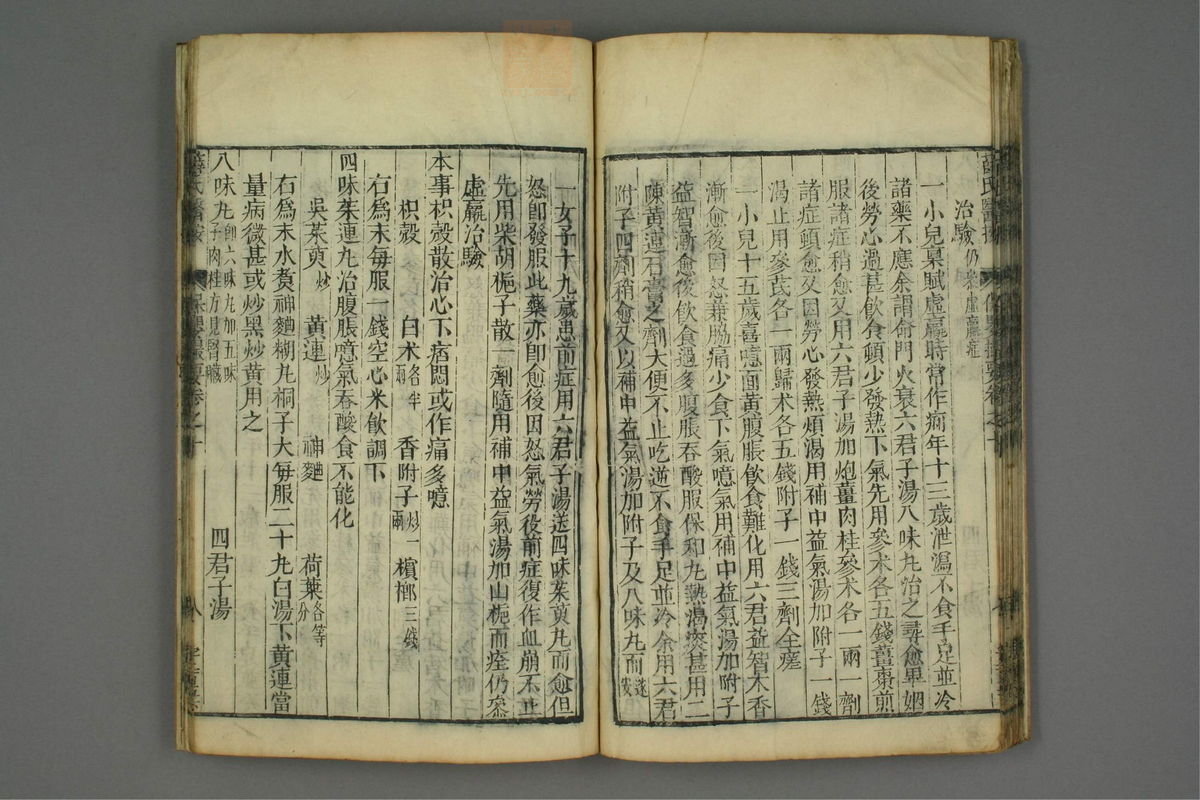 治驗仍參虛羸症
一小兒稟賦虛羸時常作痢年十三歲泄瀉不食手足並冷
諸藥不應余謂命門火衰六君子湯八味丸治之尋愈畢姻
後勞心過甚飲食頓少發熱下氣先用參术各五錢薑棗煎
服諸症稍愈又用六君子湯加炮薑肉桂參术各一兩一劑
諸症頓愈又因勞心發熱煩渴用補中益氣湯加附子一錢
渴止用參芪各一兩歸术各五錢附子一錢三劑全瘥
一小兒十五歲喜噫面黃腹脹飲食難化用六君益智木香
漸愈後因怒兼脇痛少食下氣噫氣用補中益氣湯加附子
益智漸愈後飲食過多腹脹吞酸服保和丸熱渴痰甚用二
陳黃連石膏之劑大便不止吃逆不食手足並冷余用六君
附子四劑稍愈又以補中益氣湯加附子及八味丸而遂安
一女子十九歲患前症用六君子湯送四味茱萸丸而愈但
怒卽發服此藥亦卽愈後因怒氣勞役前症復作血崩不止
先用柴胡梔子散一劑隨用補中益氣湯加山梔而痊仍參
虛羸治驗
本事枳殼散治心下痞悶或作痛多噫
枳殼 白术各半兩 香附子炒一兩 檳榔三錢
右爲末每服一錢空心米飲調下
四味茱連丸治腹脹噫氣吞酸食不能化
吳茱萸炒 黃連炒 神麯 荷葉各等分
右爲末水煑神麯糊丸桐子大每服二十丸白湯下黃連當
量病微甚或炒黑炒黃用之
八味丸卽六味丸加五味子肉桂方見腎臟 四君子湯
薛氏醫按 保嬰撮要卷之十 八